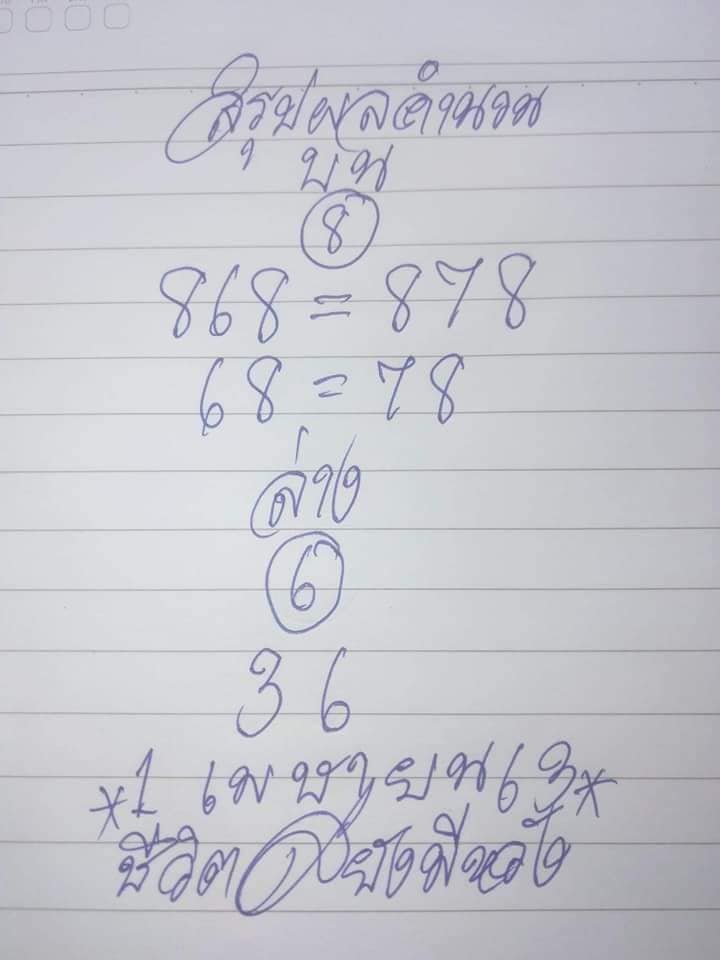 สรุปผลคำนวน
บน
8
868 = 878
68 = 78
ล่าง
6
36
*1 เมษายน63*
ชีวิตยังมีหวัง